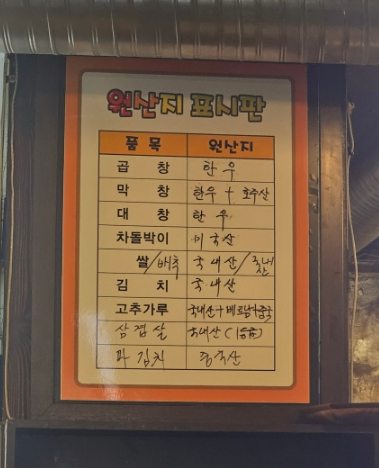 원산지 표시판
품 목 원산지
곱 창 한 우
막 창 한우 + 호주산
대 창 한 우
차돌박이 미국산
쌀/배추 국내산/국내산
김 치 국내산
고추가루 국내산+베트남+중국
삼겹살 국내산
파김치